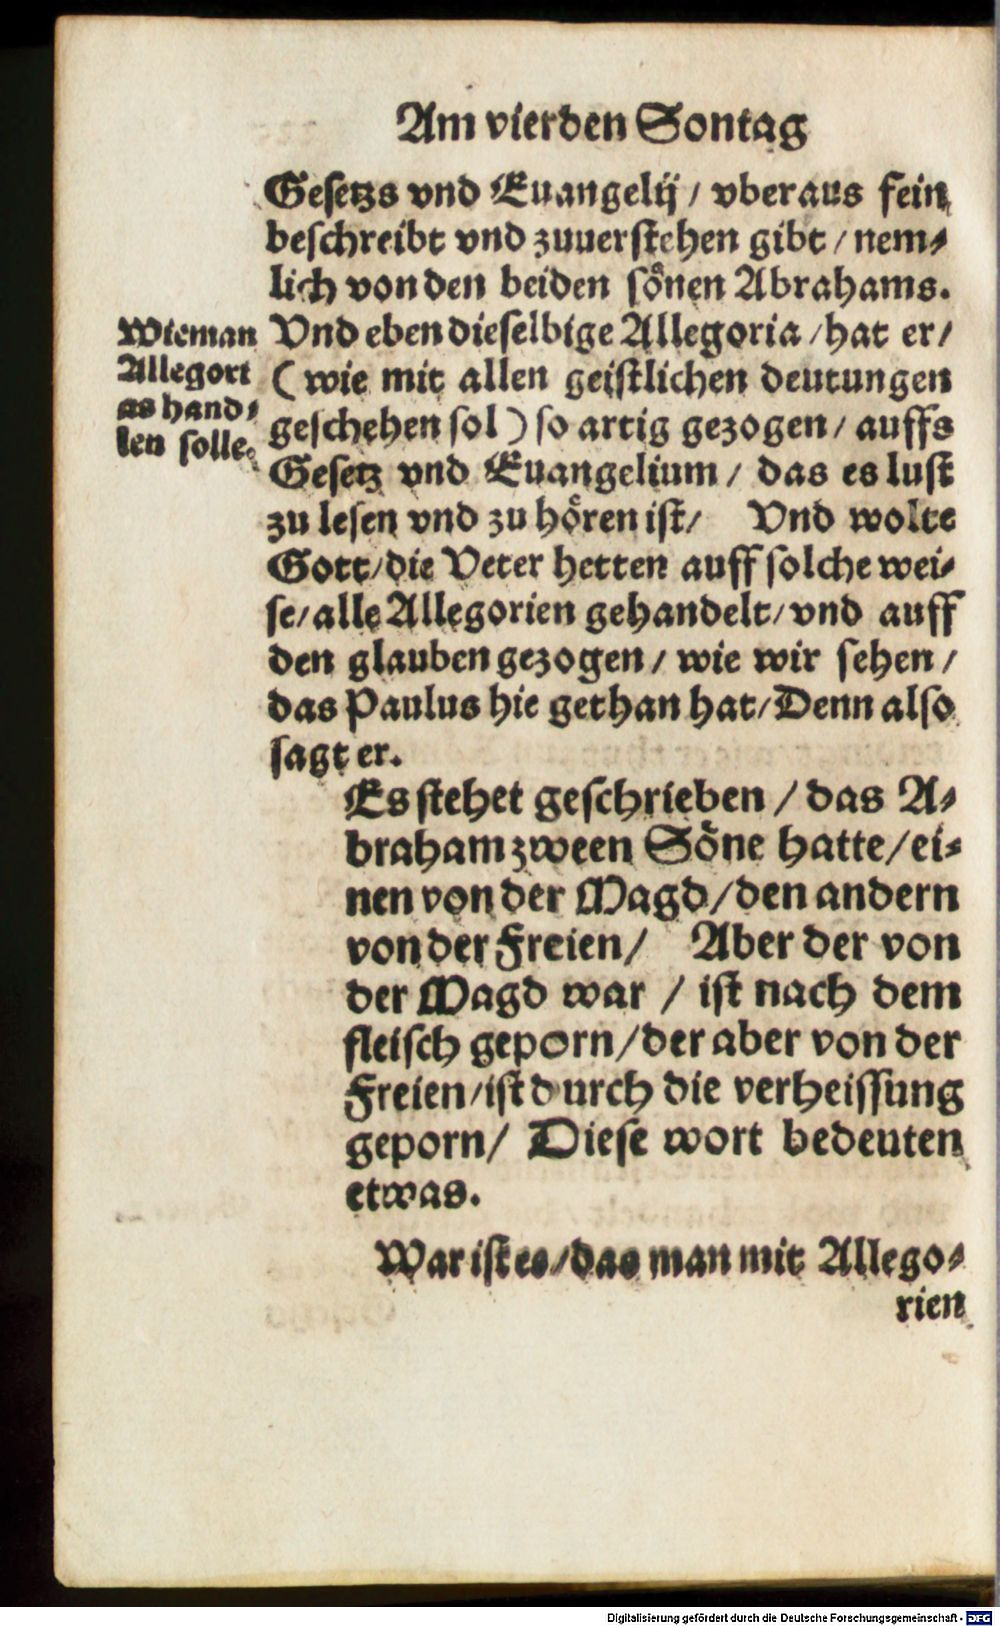 Am vierden Sontag
Gesetzs vnd Euangelij / vberaus fein
beschreibt vnd zuuerstehen gibt / nem⸗
lich von den beiden soͤnen Abrahams.
Vnd eben dieselbige Allegoria / hat er /
( wie mit allen geistlichen deutungen
geschehen sol ) so artig gezogen / auffs
Gesetz vnd Euangelium / das es lust
zu lesen vnd zu hoͤren ist / Vnd wolte
Gott / die Veter hetten auff solche wei⸗
se / alle Allegorien gehandelt / vnd auff
den glauben gezogen / wie wir sehen /
das Paulus hie gethan hat / Denn also
sagt er.
Wie man
Allegori
as hand⸗
len solle.
Es stehet geschrieben / das A⸗
braham zween Soͤne hatte / ei⸗
nen von der Magd / den andern
von der Freien / Aber der von
der Magd war / ist nach dem
fleisch geporn / der aber von der
Freien / ist durch die verheissung
geporn / Diese wort bedeuten
etwas.
War ist es / das man mit Allego⸗
rien
Digitalisierung gefördert durch die Deutsche Forschungsgemeinschaft - DFG